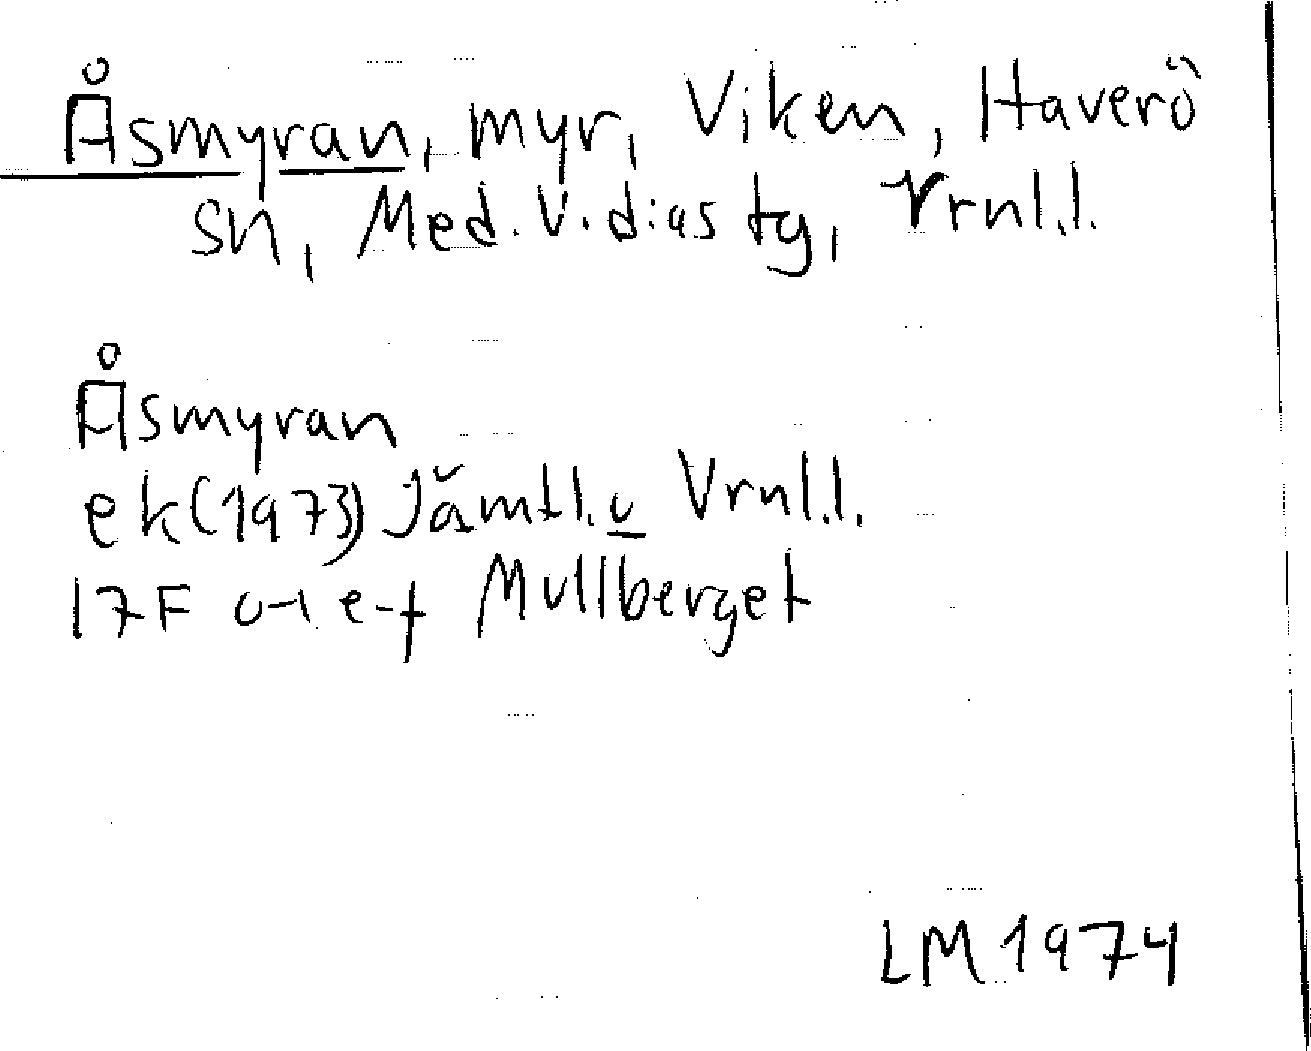 Åsmyran, myr, Viken, Haverö
sn, Med. V. d:as tg, Vrnl.l.
Åsmyran
ek (1973) Jämtl. o Vrnl.l.
17F c-d e-f Mullberget
LM 1974